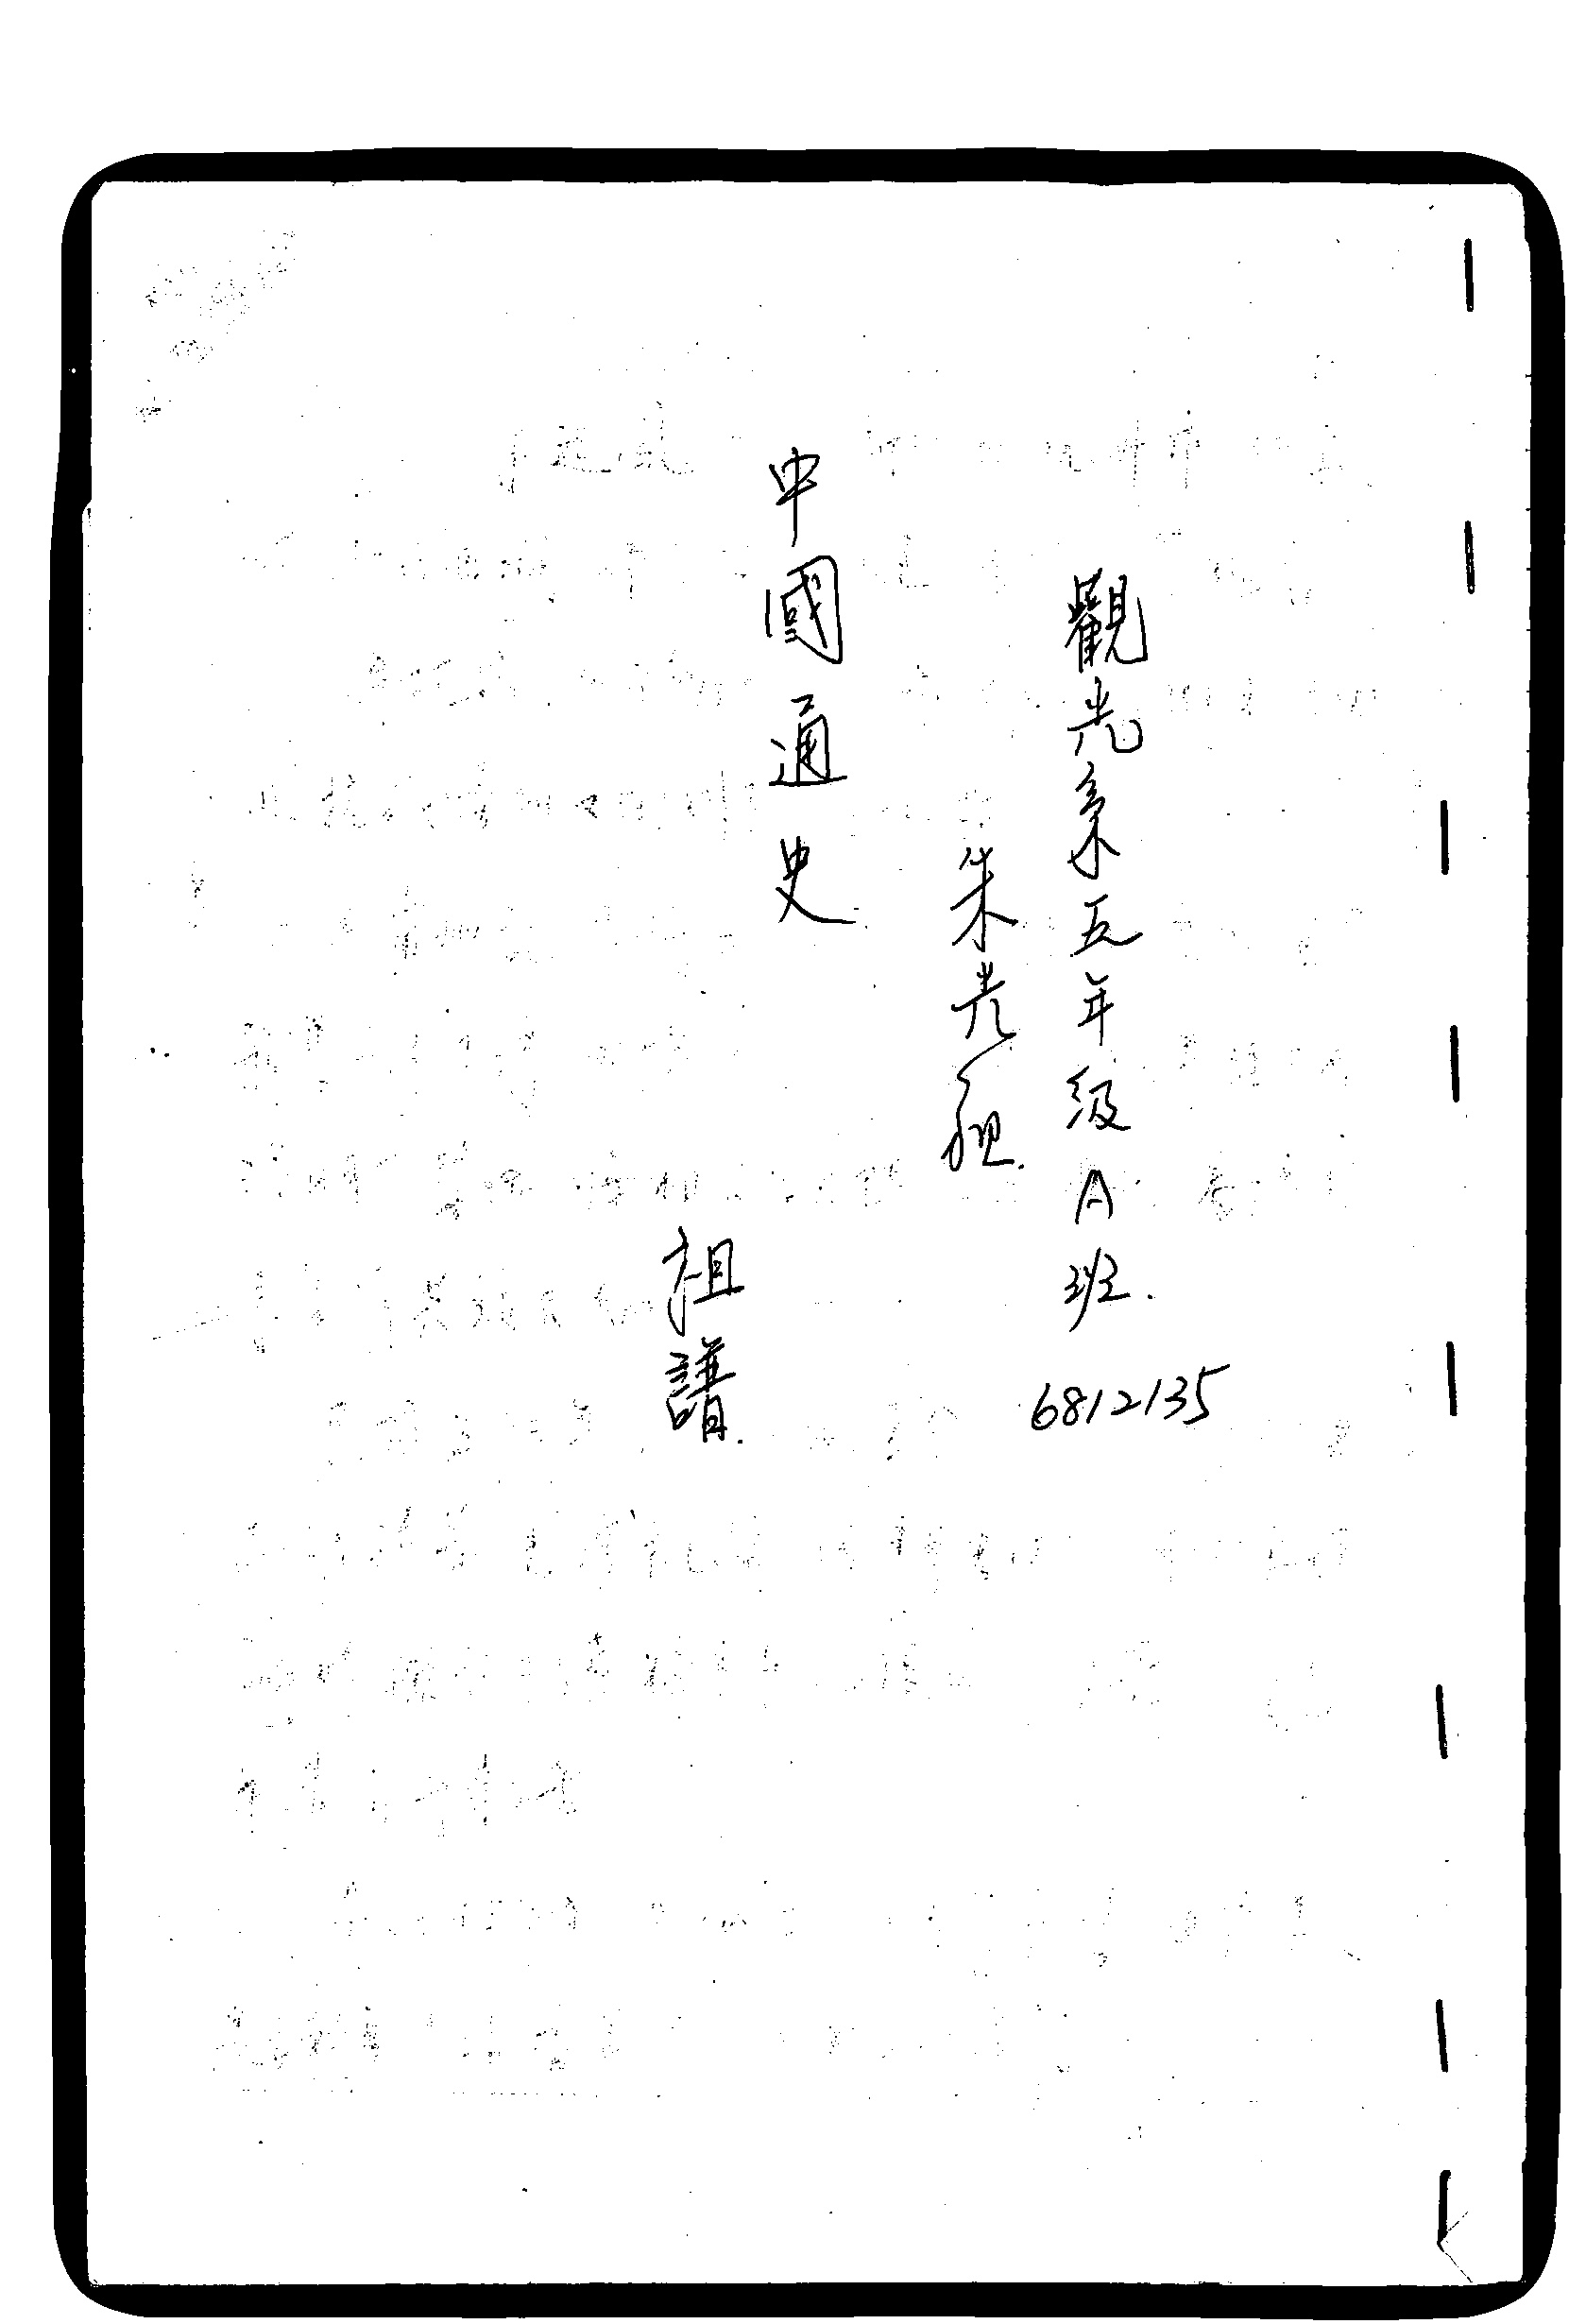 觀光系五年級A班.
6812135
朱光
中國通史
祖譜.